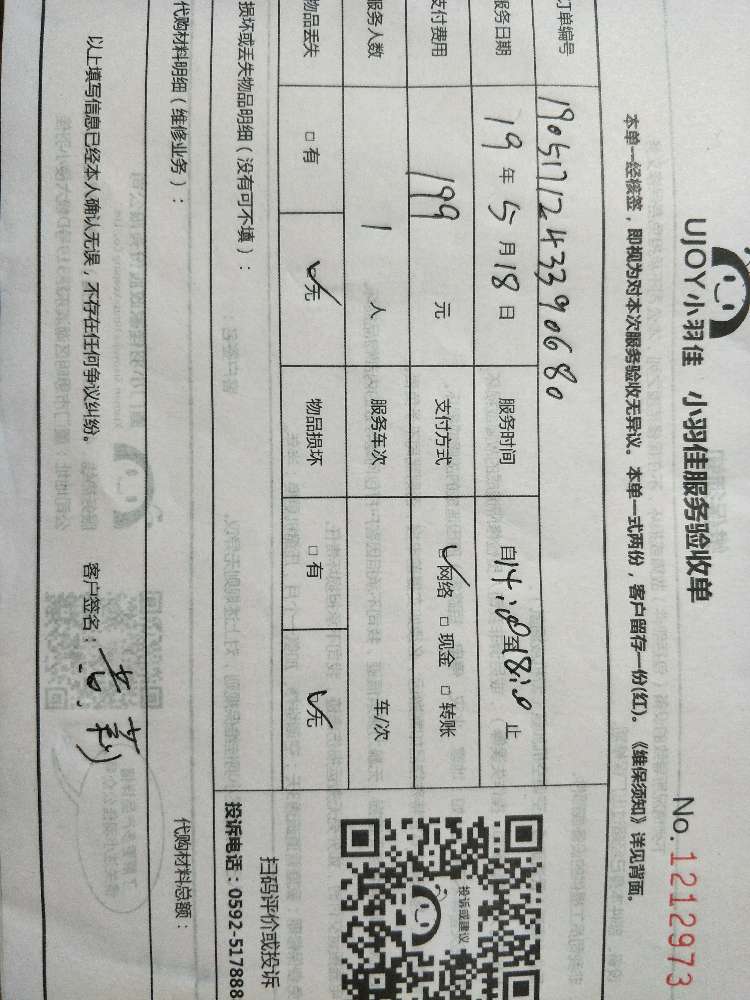 UJOY小羽佳 小羽佳服务验收单
No.1212973
本单一经核签，即视为对本次服务验收无异议。本单一式两份，客户留存一份(红)。《维保须知》详见背面。
订单编号 1905171243390680
服务日期 19年5月18日 服务时间 自14:00至18:00止
支付费用 199元 支付方式 ☑网络 □现金 □转账
服务人数 1人 服务车次 车/次
物品丢失 □有 ☑无 物品损坏 □有 ☑无
投诉或建议
扫码评价或投诉
投诉电话：0592-517888
损坏或丢失物品明细（没有可不填）：
代购材料明细（维修业务）： 代购材料总额：
以上填写信息已经本人确认无误，不存在任何争议纠纷。 客户签名：